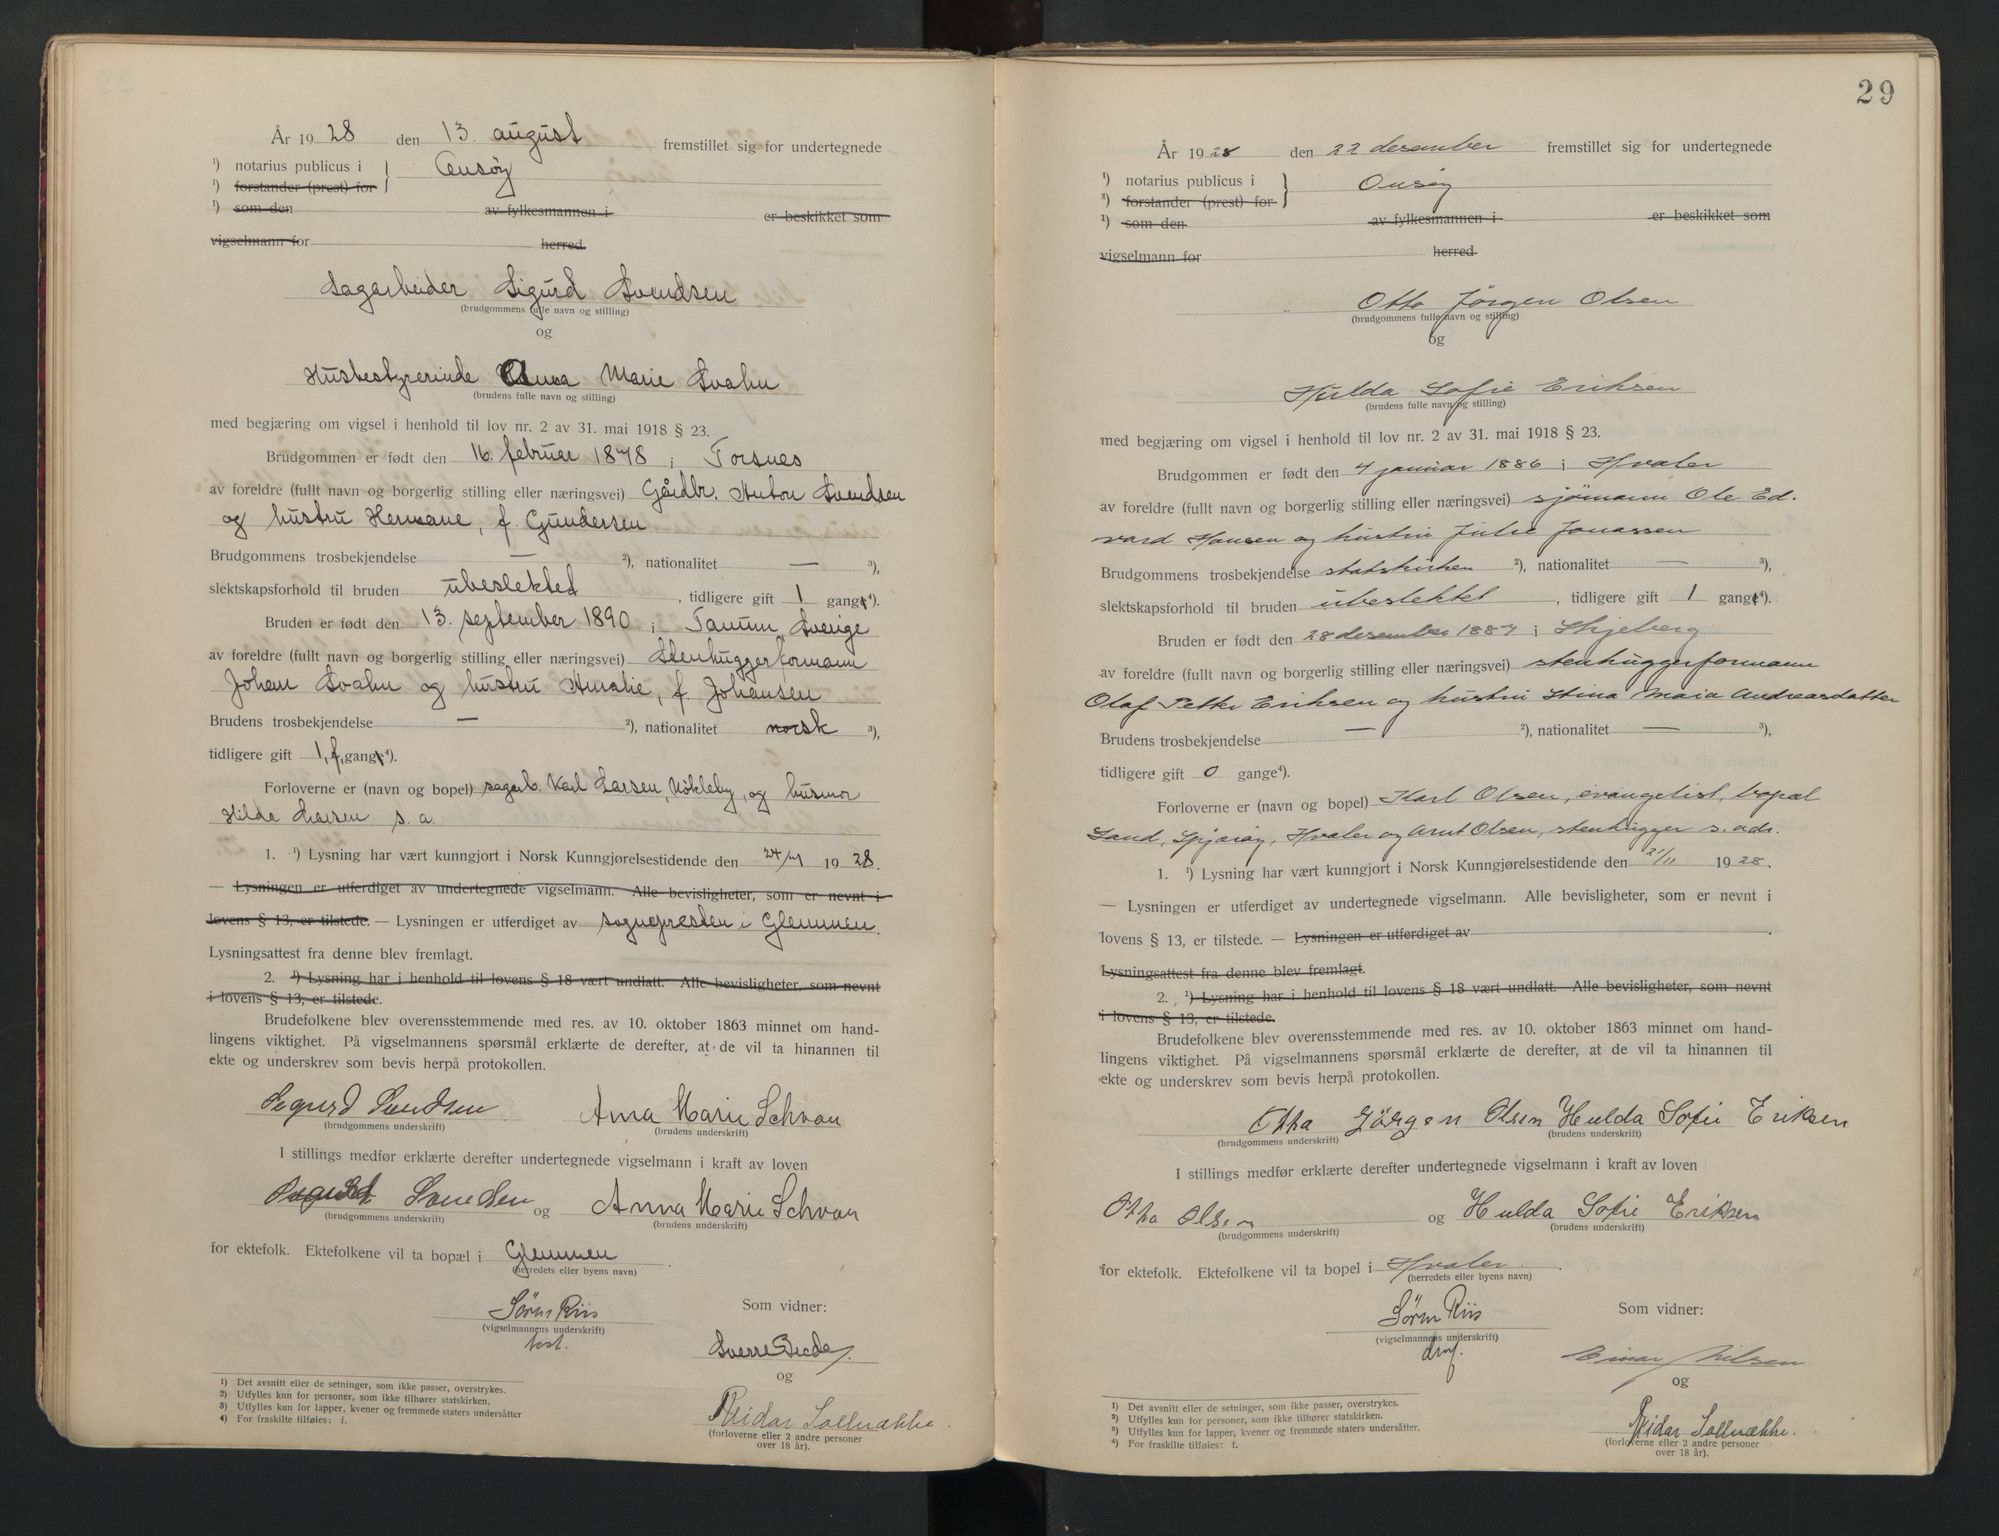 År 1928 den 13. august fremstillet sig for undertegnede
¹) notarius publicus i } Onsøy
¹) forstander (prest) for
¹) som den av fylkesmannen i er beskikket som
vigselmann for herred
Sagarbeider Sigurd Svendsen
(brudgommens fulle navn og stilling)
og
Husbestyrerinde Anna Marie Svahn
(brudens fulle navn og stilling)
med begjæring om vigsel i henhold til lov nr. 2 av 31. mai 1918 § 23.
Brudgommen er født den 16. februar 1878 i Torsnes
av foreldre (fullt navn og borgerlig stilling eller næringsvei) Gårdbr. Anton Svendsen
og hustru Hermane, f. Gundersen
Brudgommens trosbekjendelse — ²), nationalitet — ³),
slektskapsforhold til bruden ubeslektet, tidligere gift 1 gang⁴).
Bruden er født den 13. september 1890 i Tanum, Sverige
av foreldre (fullt navn og borgerlig stilling eller næringsvei) Stenhuggerformann
Johan Svahn og hustru Amalie, f. Johansen
Brudens trosbekjendelse — ²), nationalitet norsk ³),
tidligere gift 1, f, gang⁴).
Forloverne er (navn og bopel) sagarb. Karl Larsen, Nøkleby, og husmor
Hilda Larsen s. a.
1. ¹) Lysning har vært kunngjort i Norsk Kunngjørelsestidende den 24/7 1928.
— Lysningen er utferdiget av undertegnede vigselmann. Alle bevisligheter, som er nevnt i
lovens § 13, er tilstede. — Lysningen er utferdiget av sognepresten i Glemmen.
Lysningsattest fra denne blev fremlagt.
2. ¹) Lysning har i henhold til lovens § 18 vært undlatt. Alle bevisligheter, som nevnt
i lovens § 13, er tilstede.
Brudefolkene blev overensstemmende med res. av 10. oktober 1863 minnet om hand-
lingens viktighet. På vigselmannens spørsmål erklærte de derefter, at de vil ta hinannen til
ekte og underskrev som bevis herpå protokollen.
Sigurd Svendsen Anna Marie Schvan
(brudgommens underskrift) (brudens underskrift)
I stillings medfør erklærte derefter undertegnede vigselmann i kraft av loven
Sigurd Svendsen og Anna Marie Schvan
(brudgommens underskrift) (brudens underskrift)
for ektefolk. Ektefolkene vil ta bopæl i Glemmen.
(herredets eller byens navn)
Sören Riis Som vidner:
(vigselmannens underskrift)
Sverre
og
Reidar Sollnække.
(forloverne eller 2 andre personer
over 18 år).
¹) Det avsnitt eller de setninger, som ikke passer, overstrykes.
²) Utfylles kun for personer, som ikke tilhører statskirken.
³) Utfylles kun for lapper, kvener og fremmede staters undersåtter
⁴) For fraskilte tilføies: f.
29
År 1928 den 22 desember fremstillet sig for undertegnede
¹) notarius publicus i } Onsøy
¹) forstander (prest) for
¹) som den av fylkesmannen i er beskikket som
vigselmann for herred
Otto Jörgen Olsen
(brudgommens fulle navn og stilling)
og
Hulda Sofie Eriksen
(brudens fulle navn og stilling)
med begjæring om vigsel i henhold til lov nr. 2 av 31. mai 1918 § 23.
Brudgommen er født den 4 januar 1886 i Hvaler
av foreldre (fullt navn og borgerlig stilling eller næringsvei) sjömann Ole Ed.
vard Hansen og hustru Julie Jonassen
Brudgommens trosbekjendelse statskirken ²), nationalitet — ³),
slektskapsforhold til bruden ubeslektet, tidligere gift 1 gang⁴).
Bruden er født den 28 desember 1887 i Skjeberg
av foreldre (fullt navn og borgerlig stilling eller næringsvei) stenhuggerformann
Olaf Petter Eriksen og hustru Stina Maia Andreasdatter
Brudens trosbekjendelse — ²), nationalitet — ³),
tidligere gift 0 gange⁴).
Forloverne er (navn og bopel) Karl Olsen, evangelist, bopæl
Sand, Spjæröy, Hvaler og Arnt Olsen, stenhugger s. adr.
1. ¹) Lysning har vært kunngjort i Norsk Kunngjørelsestidende den 21/11 1928.
— Lysningen er utferdiget av undertegnede vigselmann. Alle bevisligheter, som er nevnt i
lovens § 13, er tilstede. — Lysningen er utferdiget av
Lysningsattest fra denne blev fremlagt.
2. ¹) Lysning har i henhold til lovens § 18 vært undlatt. Alle bevisligheter, som nevnt
i lovens § 13, er tilstede.
Brudefolkene blev overensstemmende med res. av 10. oktober 1863 minnet om hand-
lingens viktighet. På vigselmannens spørsmål erklærte de derefter, at de vil ta hinannen til
ekte og underskrev som bevis herpå protokollen.
Otto Jörgen Olsen Hulda Sofie Eriksen
(brudgommens underskrift) (brudens underskrift)
I stillings medfør erklærte derefter undertegnede vigselmann i kraft av loven
Otto Olsen og Hulda Sofie Eriksen
(brudgommens underskrift) (brudens underskrift)
for ektefolk. Ektefolkene vil ta bopel i Hvaler.
(herredets eller byens navn)
Sören Riis Som vidner:
(vigselmannens underskrift)
Einar Nilsen
og
Reidar Sollnække.
(forloverne eller 2 andre personer
over 18 år).
¹) Det avsnitt eller de setninger, som ikke passer, overstrykes.
²) Utfylles kun for personer, som ikke tilhører statskirken.
³) Utfylles kun for lapper, kvener og fremmede staters undersåtter.
⁴) For fraskilte tilføies: f.